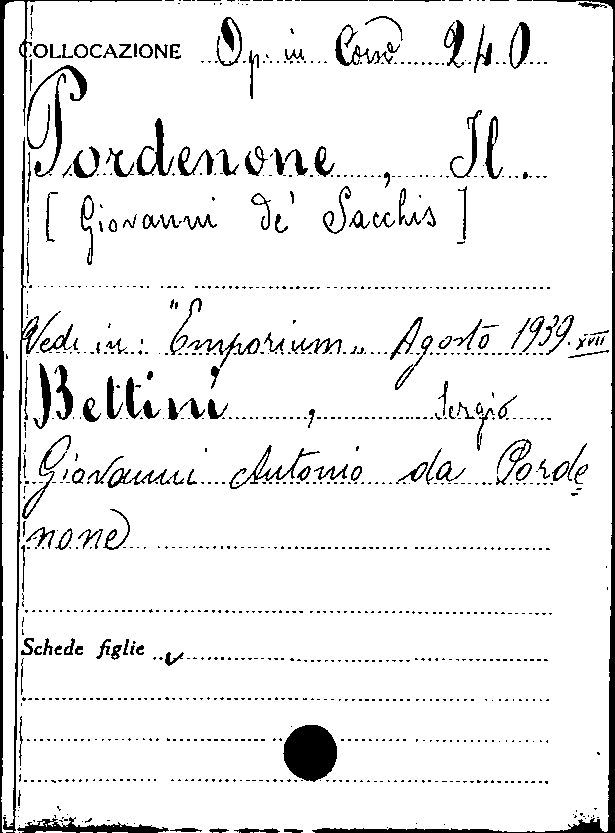 COLLOCAZIONE Op. in Corso 240
Pordenone, Il.
[Giovanni de' Sacchis]
Vedi in: "Emporium„ Agosto 1939. XVII
Bettini, Sergio
Giovanni Antonio da Porde=
none
Schede figlie